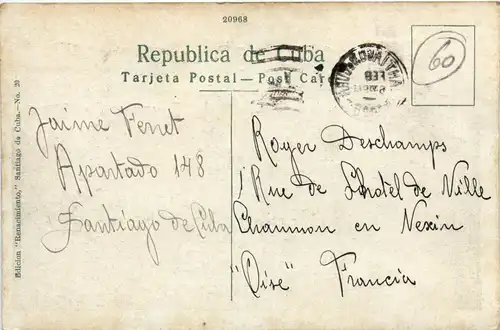 20968
Republica de Cuba
Tarjeta Postal — Post Card
60
Edicion "Renacimiento," Santiago de Cuba.—No. 20
Jaime Fenet
Apartado 148
Santiago de Cuba
Roger Deschamps
Rue de l'hotel de Ville
Chaumon en Vexin
"Oise" Francia